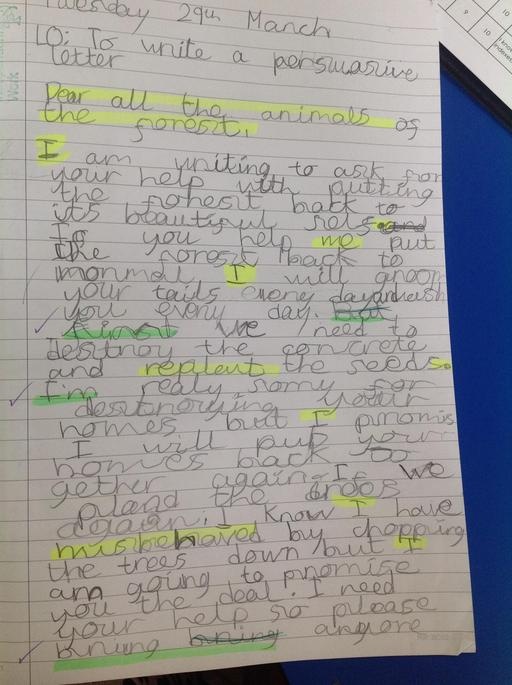 Tuesday 29th March
LO: To write a persuasive
letter
Dear all the animals of
the forest.
I am writing to ask for
your help with putting
the forest back to
its beautiful self
If you help me put
the forest back to
mormal I will groom
your tails every day and wash
you every day. But
first We need to
destroy the concrete
and replant the seeds.
I'm realy sorry for
destroying your
homes but I promis
I will put your
homes back to
gether again. If we
pland the trees
again. I know I have
misbehaved by chopping
the trees down but I
am going to promise
you the deal. I need
your help so please
bring anyone
10
9
10